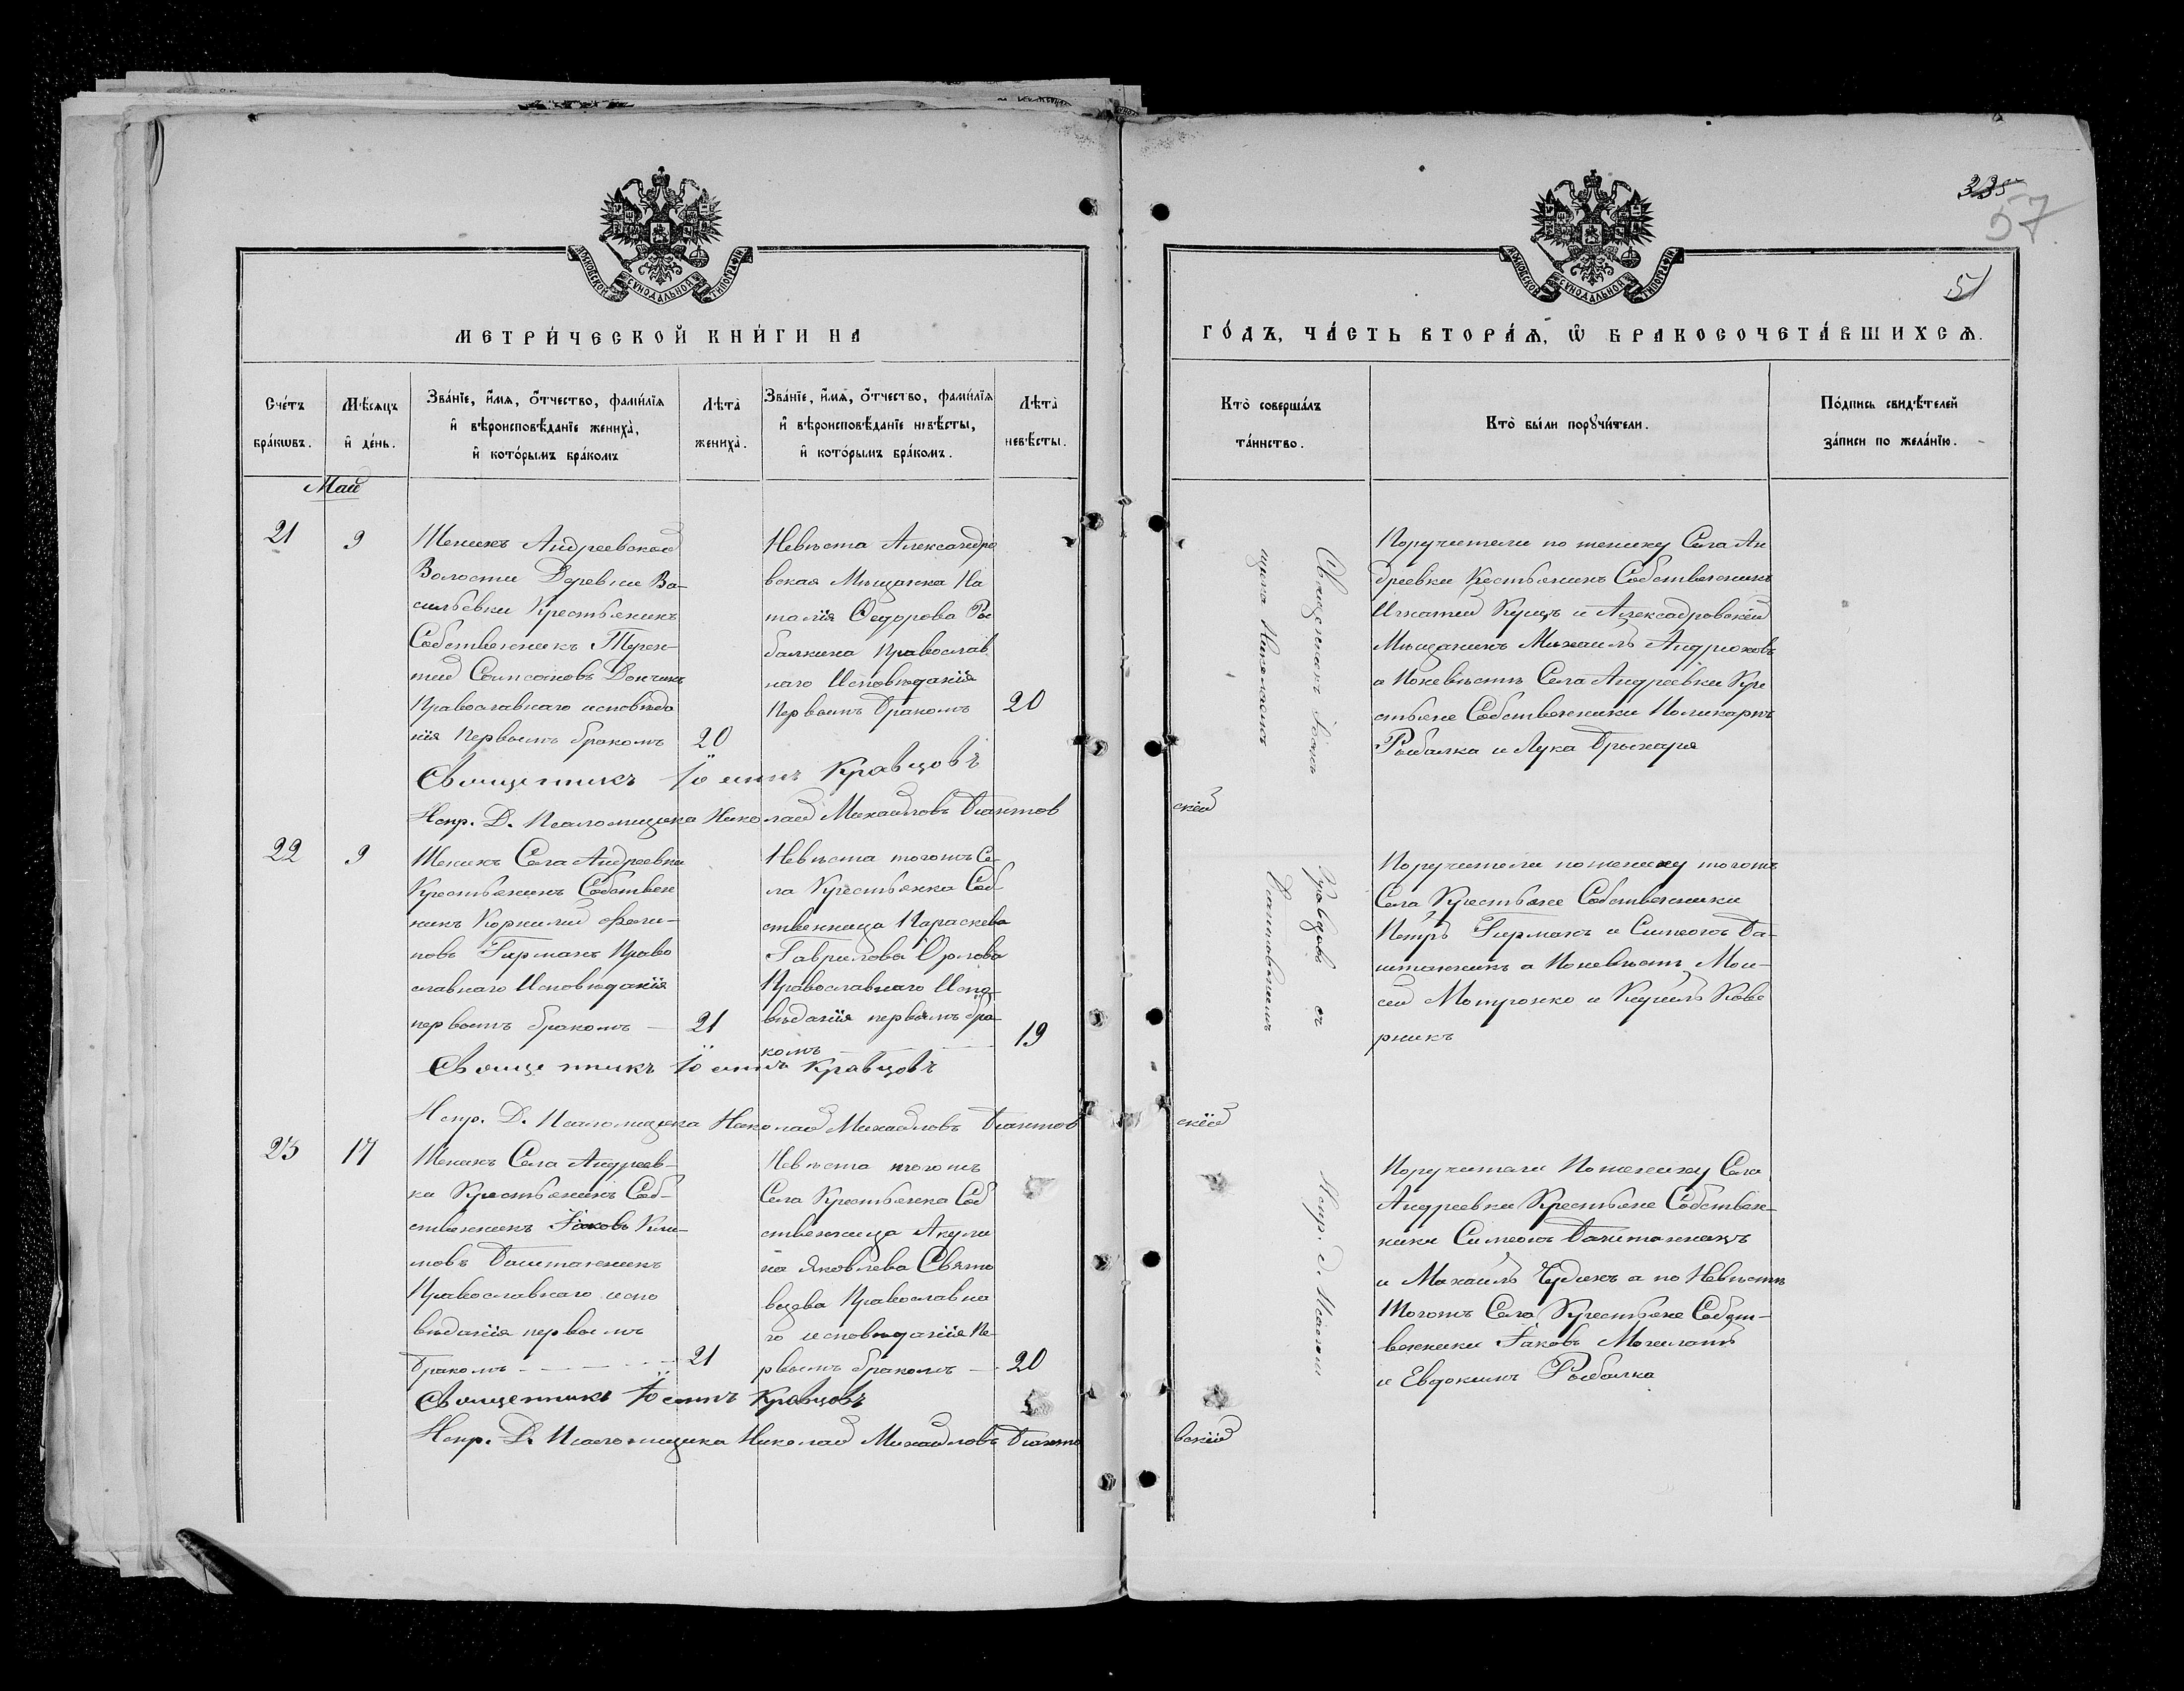 МОСКОВСКОЙ СѴНОДАЛЬНОЙ ТИПОГРАФІИ
МЕТРИ́ЧЕСКОЙ КНИ́ГИ НА
Сче́тъ бра́кѡвъ.
Мѣ́сяцъ и҆ де́нь.
Зва́нїе, и҆́мѧ, ѻ҆́тчество, фамі́лїѧ
и҆ вѣроисповѣ́данїе жениха̀,
и҆ кото́рымъ бра́комъ
Лѣ́та жениха̀.
Зва́нїе, и҆́мѧ, ѻ҆́тчество, фамі́лїѧ
и҆ вѣроисповѣ́данїе невѣ́сты,
и҆ кото́рымъ бра́комъ.
Лѣ́та невѣ́сты.
Май
21
9
Женихъ Андреевской
Волости Деревни Ва-
сильевки Крестьянинъ
Собственникъ Терен-
тій Сампсоновъ Дончикъ
Православнаго исповѣда
нія Первымъ бракомъ
20
Невѣста Александро
вская Мѣщанка На
талія Ѳедорова Ры
балкина Православ
наго Исповѣданія
Первымъ бракомъ
20
Священникъ Іоаннъ Кравцовъ
Испр. Д. Псаломщика Николай Михайловъ Діантов
22
9
Женихъ Села Андреевки
Крестьянинъ Собствен
никъ Корнилій Фили-
повъ Гирманъ Право
славнаго Исповѣданія
первымъ бракомъ —
21
Невѣста тогожъ Се-
ла Крестьянка Соб-
ственница Параскева
Гаврилова Орлова
Православнаго Испо-
вѣданія первымъ бра-
комъ
19
Священникъ Іоаннъ Кравцовъ
Испр. Д. Псаломщика Николай Михайловъ Діантов
23
17
Женихъ Села Андреев-
ки Крестьянинъ Соб-
ственникъ Іаковъ Кли-
мовъ Баштанникъ
Православнаго испо
вѣданія первымъ
бракомъ
21
Невѣста тогожъ
Села Крестьянка Соб
ственница Акули
на Яковлева Свято
вцева Православна
го исповѣданія Пе-
рвымъ бракомъ —
20
Священникъ Іоаннъ Кравцовъ
Испр. Д. Псаломщика Николай Михайловъ Діанто
235
57
51
МОСКОВСКОЙ СѴНОДАЛЬНОЙ ТИПОГРАФІИ
ГО́ДЪ, ЧА́СТЬ ВТОРА́Ѧ, Ѽ БРАКОСОЧЕТА́ВШИХСѦ.
Кто̀ соверша́лъ
та́инство.
Кто̀ бы́ли порꙋчи́тели.
По́дпись свидѣ́телей
за́писи по жела́нїю.
Священникъ Іоаннъ Кравцовъ съ Испр. д. Псалом
щика Николаемъ Діантовскимъ
Поручители по жениху Села Ан
дреевки Крестьянинъ Собственникъ
Игнатій Куцъ и Александровскій
Мѣщанинъ Михаилъ Андрюховъ
а Поневѣстѣ Села Андреевки Кре
стьяне Собственники Поликарпъ
Рыбалка и Лука Брыжаря
скій
Поручители пожениху тогожъ
Села Крестьяне Собственники
Петръ Гирманъ и Симеонъ Ба-
штанникъ а Поневѣстѣ Мои-
сей Мотронко и Кирилъ Кове
рникъ
скій
Поручители Пожениху Села
Андреевки Крестьяне Собствен-
ники Симеонъ Баштанникъ
и Михаилъ Чудикъ а по Невѣстѣ
Тогожъ Села Крестьяне Собст-
венники Іаковъ Могилатъ
и Евдокимъ Рыбалка
вскій